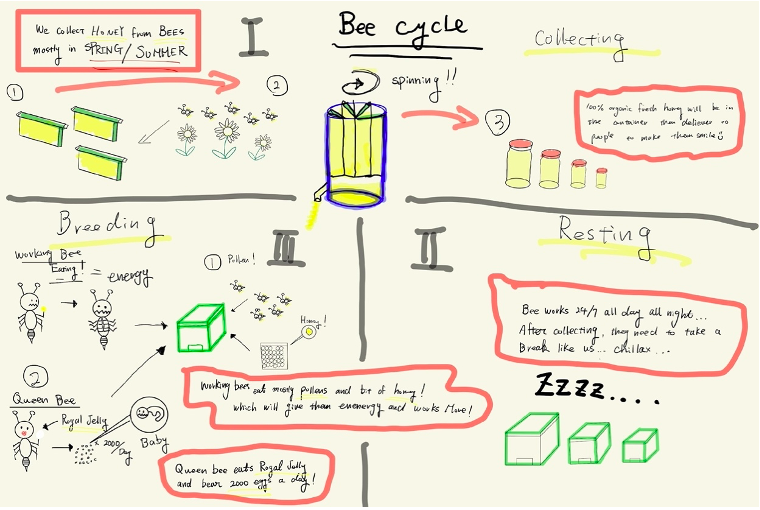 Bee cycle
We collect HONEY from BEES
mostly in SPRING/SUMMER
I
Collecting
1
2
spinning!!
3
100% organic fresh honey will be in
the container then deliever to
people to make them smile
Breeding
III
Working Bee
Eating! = energy
1 Pollon!
Honey!
2
Queen Bee
Royal Jelly
2000/Day
Baby
Working bees eat mostly pollons and bit of honey!
which will give them enenergy and works More!
Queen bee eats Royal Jelly
and bear 2000 eggs a day!
II
Resting
Bee works 24/7 all day all night...
After collecting, they need to take a
Break like us... chillax...
Zzzz....